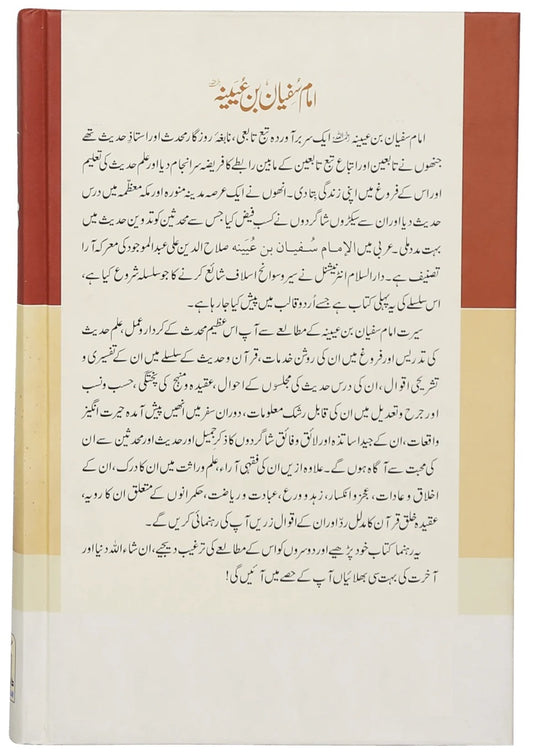 امام سُفیان بن عُیَینہ رحمہ اللہ
امام سفیان بن عیینہ رحمہ اللہ ایک سربرآوردہ تبع تابعی، نابغۂ روزگار محدث اور استاذِ حدیث تھے
جنھوں نے تابعین اور اتباع تبع تابعین کے مابین رابطے کا فریضہ سرانجام دیا اور علم حدیث کی تعلیم
اور اس کے فروغ میں اپنی زندگی بتا دی۔ انھوں نے ایک عرصہ مدینہ منورہ اور مکہ معظمہ میں درس
حدیث دیا اور ان سے سیکڑوں شاگردوں نے کسب فیض کیا جس سے محدثین کو تدوین حدیث میں
بہت مدد ملی۔ عربی میں الإمام سُفيان بن عُيَينه صلاح الدین علی عبدالموجود کی معرکہ آرا
تصنیف ہے۔ دارالسلام انٹرنیشنل نے سیر و سوانح اسلاف شائع کرنے کا جو سلسلہ شروع کیا ہے،
اس سلسلے کی یہ پہلی کتاب ہے جسے اُردو قالب میں پیش کیا جا رہا ہے۔
سیرت امام سفیان بن عیینہ کے مطالعے سے آپ اس عظیم محدث کے کردار و عمل، علم حدیث
کی تدریس اور فروغ میں ان کی روشن خدمات، قرآن و حدیث کے سلسلے میں ان کے تفسیری و
تشریحی اقوال، ان کی درس حدیث کی مجلسوں کے احوال، عقیدہ و منہج کی پختگی، حسب و نسب
اور جرح و تعدیل میں ان کی قابل رشک معلومات، دوران سفر میں انھیں پیش آمدہ حیرت انگیز
واقعات، ان کے جید اساتذہ اور لائق و فائق شاگردوں کا ذکرِ جمیل اور حدیث اور محدثین سے ان
کی محبت سے آگاہ ہوں گے۔ علاوہ ازیں ان کی فقہی آراء، علم وراثت میں ان کا درک، ان کے
اخلاق و عادات، عجز و انکسار، زہد و ورع، عبادت و ریاضت، حکمرانوں کے متعلق ان کا رویہ،
عقیدہ خلق قرآن کا مدلل ردّ اور ان کے اقوال زریں آپ کی رہنمائی کریں گے۔
یہ رہنما کتاب خود پڑھیے اور دوسروں کو اس کے مطالعے کی ترغیب دیجیے، ان شاء اللہ دنیا اور
آخرت کی بہت سی بھلائیاں آپ کے حصے میں آئیں گی!